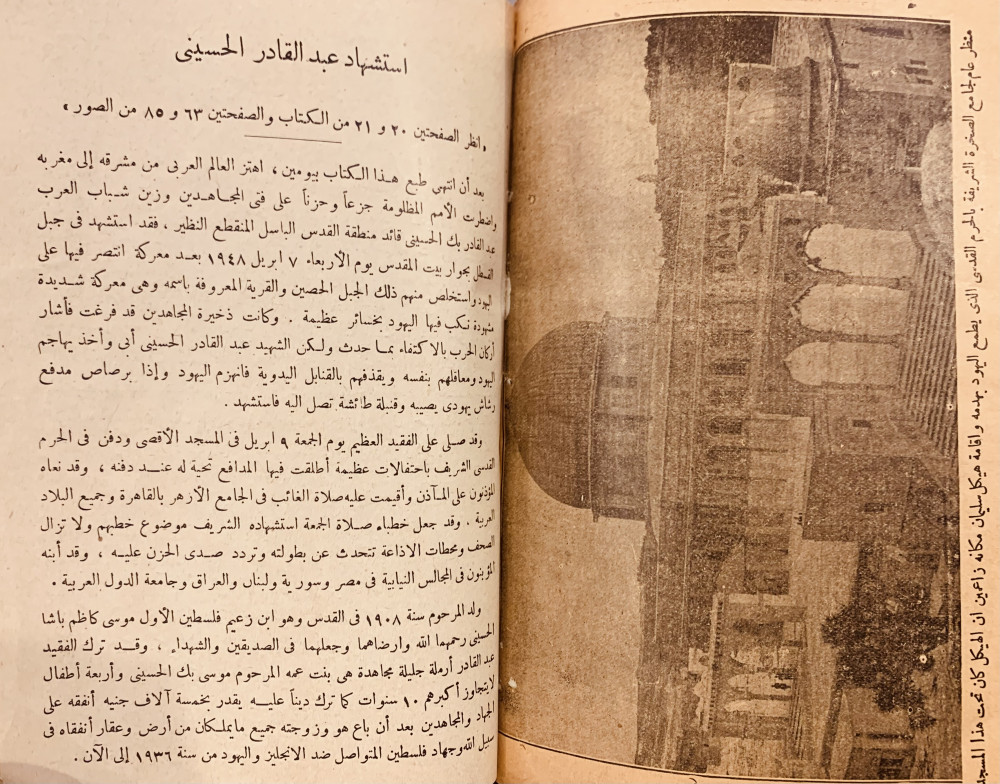 استشهاد عبد القادر الحسينى
« انظر الصفحتين ٢٠ و ٢١ من الكتاب والصفحتين ٦٣ و ٨٥ من الصور »
بعد أن انتهى طبع هذا الكتاب بيومين ، اهتز العالم العربى من مشرقه إلى مغربه
واضطربت الأمم المظلومة جزعاً وحزناً على فتى المجاهدين وزين شباب العرب
عبد القادر بك الحسينى قائد منطقة القدس الباسل المنقطع النظير ، فقد استشهد فى جبل
القسطل بجوار بيت المقدس يوم الأربعاء ٧ ابريل ١٩٤٨ بعد معركة انتصر فيها على
اليهود واستخلص منهم ذلك الجبل الحصين والقرية المعروفة باسمه وهى معركة شديدة
مشهودة نكب فيها اليهود بخسائر عظيمة . وكانت ذخيرة المجاهدين قد فرغت فأشار
أركان الحرب بالاكتفاء بما حدث ولكن الشهيد عبد القادر الحسينى أبى وأخذ يهاجم
اليهود ومعاقلهم بنفسه ويقذفهم بالقنابل اليدوية فانهزم اليهود وإذا برصاص مدفع
رشاش يهودى يصيبه وقنبلة طائشة تصل اليه فاستشهد .
وقد صلى على الفقيد العظيم يوم الجمعة ٩ ابريل فى المسجد الأقصى ودفن فى الحرم
القدسى الشريف باحتفالات عظيمة أطلقت فيها المدافع تحية له عند دفنه ، وقد نعاه
المؤذنون على المآذن وأقيمت عليه صلاة الغائب فى الجامع الأزهر بالقاهرة وجميع البلاد
العربية . وقد جعل خطباء صلاة الجمعة استشهاده الشريف موضوع خطبهم ولا تزال
الصحف ومحطات الاذاعة تتحدث عن بطولته وتردد صدى الحزن عليه ، وقد أبنه
المؤبنون فى المجالس النيابية فى مصر وسورية ولبنان والعراق وجامعة الدول العربية .
ولد المرحوم سنة ١٩٠٨ فى القدس وهو ابن زعيم فلسطين الأول موسى كاظم باشا
الحسينى رحمهما الله وارضاهما وجعلهما فى الصديقين والشهداء ، وقد ترك الفقيد
عبد القادر أرملة جليلة مجاهدة هى بنت عمه المرحوم موسى بك الحسينى وأربعة أطفال
لا يتجاوز أكبرهم ١٠ سنوات كما ترك ديناً عليه يقدر بخمسة آلاف جنيه أنفقه على
الجهاد والمجاهدين بعد أن باع هو وزوجته جميع مايملكان من أرض وعقار أنفقاه فى
سبيل الله وجهاد فلسطين المتواصل ضد الانجليز واليهود من سنة ١٩٣٦ إلى الآن .
منظر عام لجامع الصخرة الشريفة بالحرم القدسى الذى يطمع اليهود بهدمه واقامة هيكل سليمان مكانه زاعمين ان الهيكل كان تحت هذا المسجد